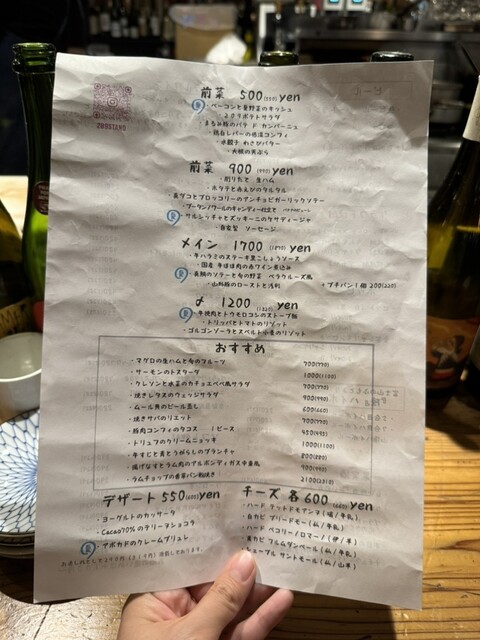 209STAND
前菜 500(550)yen
・ベーコンと夏野菜のキッシュ
209ポテトサラダ
・まちみ豚のパテ ド カンパーニュ
・鶏白レバーの低温コンフィ
・水餃子 わさびバター
・大根の天ぷら
前菜 900 (990)yen
・削りたて 生ハム
・ホタテと赤えびのタルタル
・真ダコとブロッコリーのアンチョビガーリックソテー
・ブータンノワールのキャンディー仕立て
・サルシッチャとズッキーニのクサディージャ
・自家製 ソーセージ
メイン 1700 (1870) yen
・牛ハラミのステーキ黒こしょうソース
・国産 牛ほほ肉の赤ワイン煮込み
・真鯛のソテーと旬の野菜 ベラクルーズ風
・山形豚のローストと浅利
+プチパン1個 200(220)
〆 1200 (1320) yen
・牛焼肉とトウモロコシのストーブ飯
・トリッパとトマトのリゾット
・ゴルゴンゾーラとスペルト小麦のリゾット
おすすめ
・マグロの生ハムと旬のフルーツ 700(770)
・サーモンのトスターダ 1000(1100)
・クレソンと水菜のカチョエペペ風サラダ 700(770)
・焼きレタスのウェッジサラダ 900(990)
・ムール貝のビール蒸し 600(660)
・焼きサバのリエット 700(770)
・豚肉コンフィのタコス 1ピース 450(495)
・トリュフのクリームニョッキ 1000(1100)
・牛すじと真とうがらしのプランチャ 800(880)
・揚げなすとラム肉のアルボンディガス中東風 900(990)
・ラムチョップの香草パン粉焼き 2100(2310)
デザート 550(605)yen
・ヨーグルトのカッサータ
・Cacao70%のテリーヌショコラ
・アボカドのクレームブリュレ
チーズ 各600 (660) yen
・ハード テッドドモアンヌ(瑞/牛乳)
・白カビ ブリードモー(仏/牛乳)
・ハード ペコリーノロマーノ(伊/羊)
・青カビ フルムダンベール(仏/牛乳)
・シェーブル サントモール(仏/山羊)